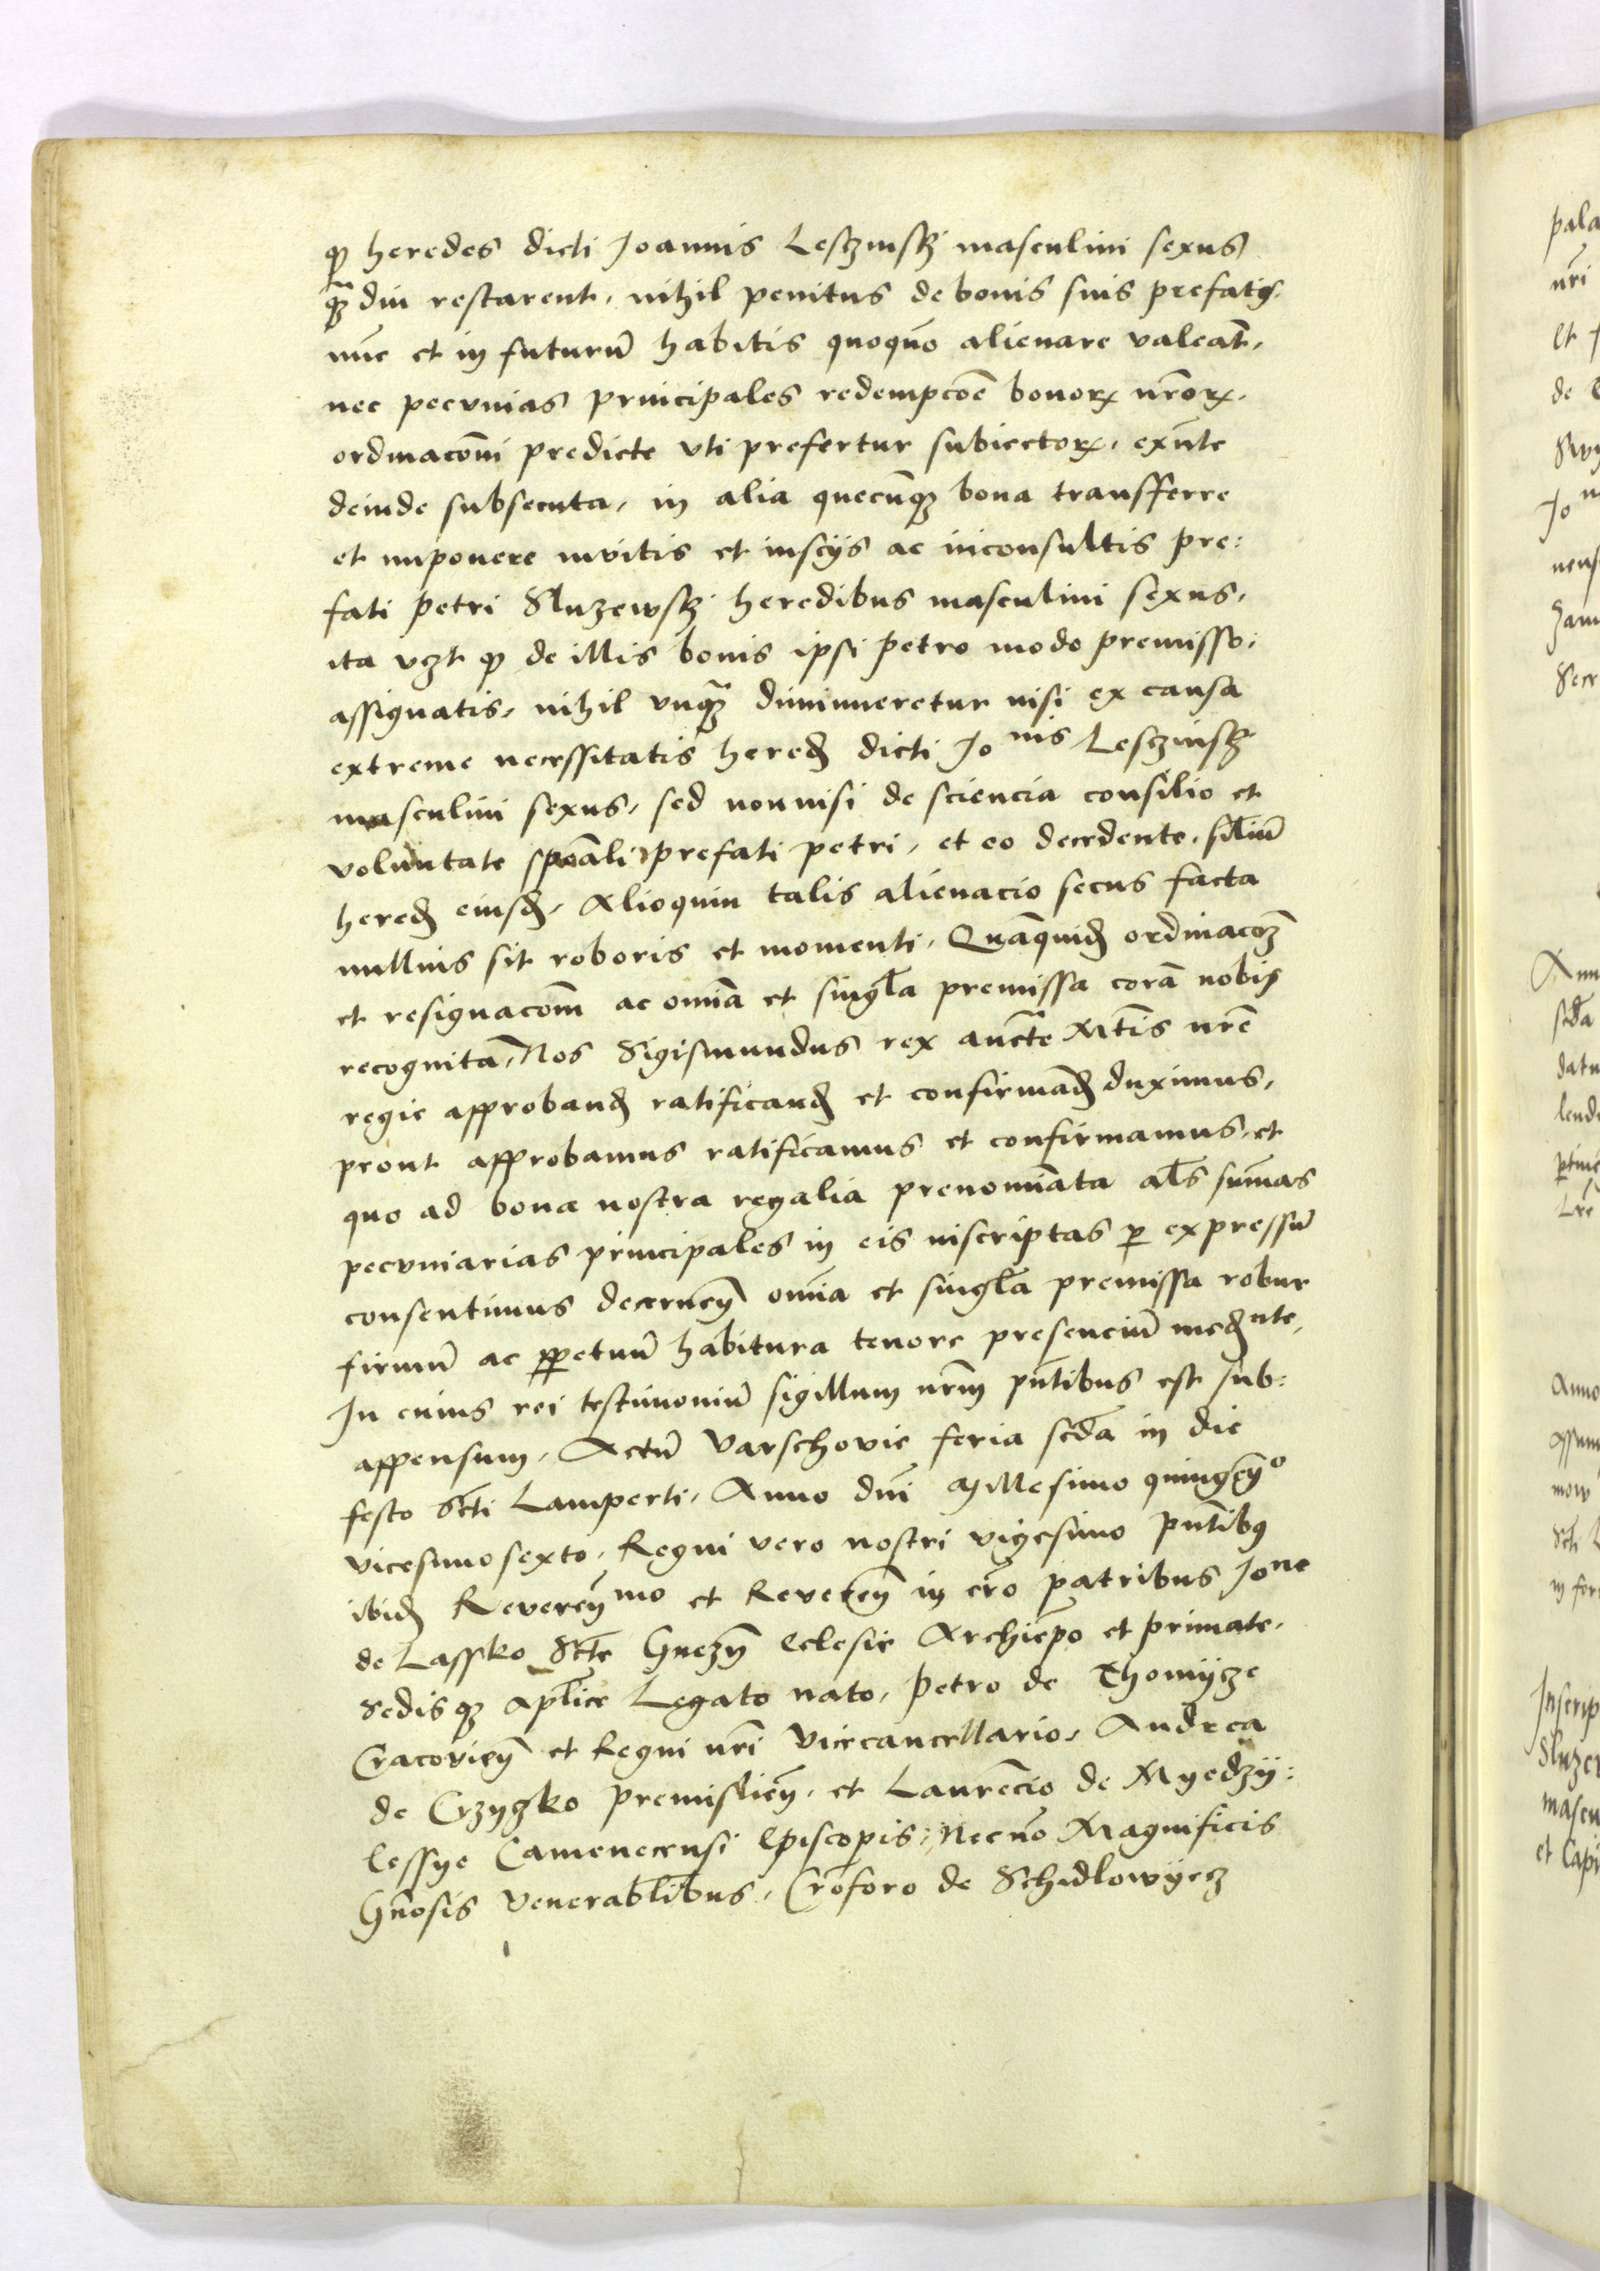 ꝙ heredes dicti Joannis Lesczinskj masculini sexus
ꝙ̃ diu restarent, nihil penitus de bonis suis prefatis
nūc et in futurū habitis quoqūo alienare valeāt,
nec pecunias principales redempcōē bonoꝝ nr̄oꝝ,
ordinacōni predicte vti prefertur subiectoꝝ, exn̄te
deinde subsecuta, in alia quecūqꝫ bona transfferre
et imponere invitis et insciis ac inconsultis pre:
fati petri Sluzewskj heredibus masculini sexus,
ita vꝫt ꝙ de illis bonis ipsi petro modo premisso:
assignatis, nihil vnqꝫ̃ diminueretur nisi ex causa
extreme necessitatis heređ dicti Jonis Lesczinskj
masculini sexus, sed nonnisi de sciencia consilio et
voluntate spāli prefati petri, et eo decedente, sīliū
heređ eiusđ, Alioquin talis alienacio secus facta
nullius sit roboris et momenti, Quāquiđ ordinacōꝫ
et resignacōm ac omīa et singl̄a premissa corā nobis
recognitā, Nos Sigismundus rex auctē Mtīs nrē
regie approbanđ ratificanđ et confirmāđ duximus,
prout approbamus ratificamus et confirmamus, et
quo ad bona nostra regalia prenomīata al̄s sum̄as
pecuniarias principales in eis inscriptas ꝑ expressū
consentimus decernen̄ omīa et singl̄a premissa robur
firmū ac ꝑpetuū habitura tenore presenciū međnte,
In cuius rei testimoniū sigillum nr̄m pn̄tibus est sub:
appensum, Actū Varschovie feria scđa in die
festo Sc̄ti Lamperti, Anno dn̄i Millesimo quingen̄o
vicesimo sexto, Regni vero nostri vigesimo pn̄tibꝰ
ibiđ Reveren̄mo et Reveren̄ in cr̄o patribus Jone
de Lassko Sctē Gnezn̄ Eclesie Archiēpo et primate,
Sedisqꝫ apl̄ice Legato nato, petro de Thomijcze
Cracovien̄ et Regni nr̄i vicecancellario, Andrea
de Crzyczko premislien̄, et Laurēcio de Myedzy:
lessye Camenecensi Episcopis, Necnō Magnificis
Gn̄osis venerabl̄ibus, Crōforo de Schidlowyecz
pala
nr̄i
et J
de
Jo
Secr
Inscrip
et Capi